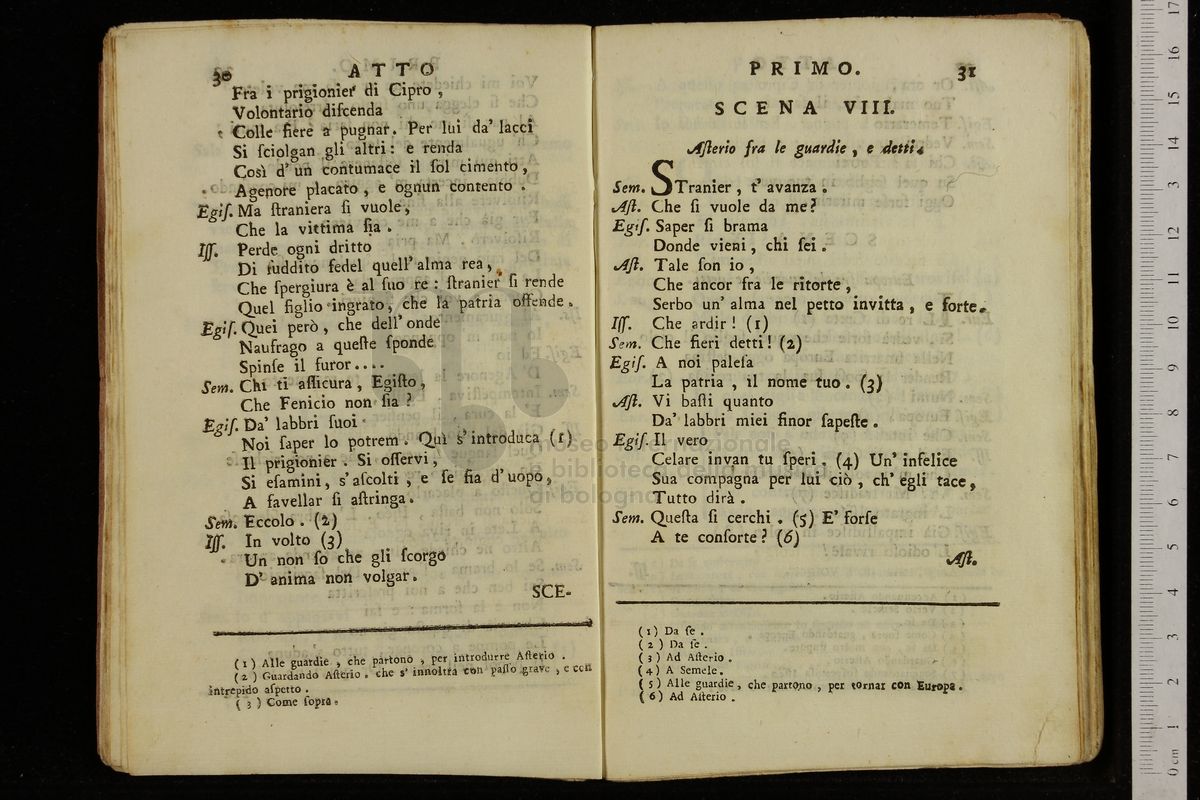 30 ATTO
Fra i prigionier di Cipro,
Volontario diſcenda
Colle fiere a pugnar. Per lui da' lacci
Si ſciolgan gli altri: e renda
Così d'un contumace il ſol cimento,
Agenore placato, e ognun contento.
Egiſ. Ma ſtraniera ſi vuole,
Che la vittima ſia.
Iſſ. Perde ogni dritto
Di ſuddito fedel quell' alma rea,
Che ſpergiura è al ſuo re: ſtranier ſi rende
Quel figlio ingrato, che la patria offende.
Egiſ. Quei però, che dell' onde
Naufrago a queſte ſponde
Spinſe il furor....
Sem. Chi ti aſſicura, Egiſto,
Che Fenicio non ſia?
Egiſ. Da' labbri ſuoi
Noi ſaper lo potrem. Quì s'introduca (1)
Il prigionier. Si oſſervi,
Si eſamini, s'aſcolti, e ſe ſia d'uopo,
A favellar ſi aſtringa.
Sem. Eccolo. (2)
Iſſ. In volto (3)
Un non ſo che gli ſcorgo
D' anima non volgar.
SCE-
(1) Alle guardie, che partono, per introdurre Aſterio.
(2) Guardando Aſterio. che s' innoltra con paſſo grave, e con
intrepido aſpetto.
(3) Come ſopra.
PRIMO. 31
SCENA VIII.
Aſterio fra le guardie, e detti.
Sem. STranier, t' avanza.
Aſt. Che ſi vuole da me?
Egiſ. Saper ſi brama
Donde vieni, chi ſei.
Aſt. Tale ſon io,
Che ancor fra le ritorte,
Serbo un' alma nel petto invitta, e forte.
Iſſ. Che ardir! (1)
Sem. Che fieri detti! (2)
Egiſ. A noi paleſa
La patria, il nome tuo. (3)
Aſt. Vi baſti quanto
Da' labbri miei finor ſapeſte.
Egiſ. Il vero
Celare invan tu ſperi. (4) Un' infelice
Sua compagna per lui ciò, ch' egli tace,
Tutto dirà.
Sem. Queſta ſi cerchi. (5) E' forſe
A te conſorte? (6)
Aſt.
(1) Da ſe.
(2) Da ſe.
(3) Ad Aſterio.
(4) A Semele.
(5) Alle guardie, che partono, per tornar con Europa.
(6) Ad Aſterio.
museo internazionale
e biblioteca della musica
di bologna